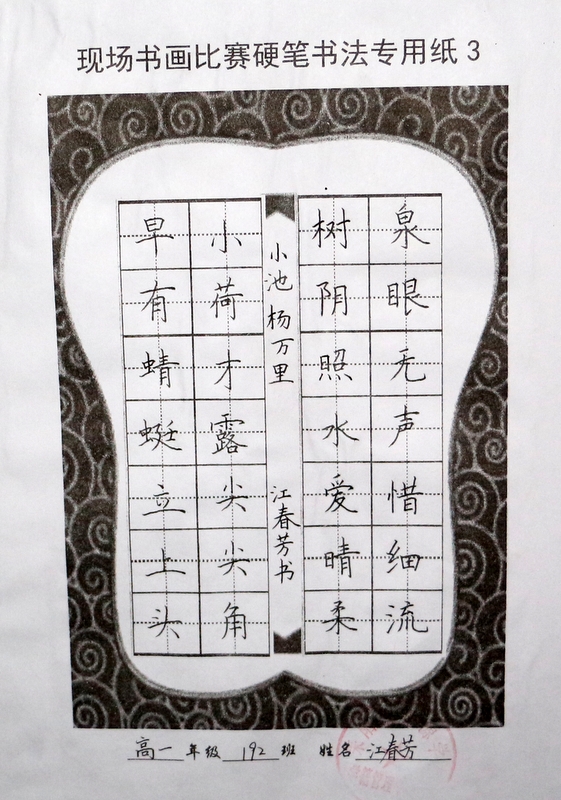 现场书画比赛硬笔书法专用纸3
泉眼无声惜细流
树阴照水爱晴柔
小池 杨万里 江春芳书
小荷才露尖尖角
早有蜻蜓立上头
高一年级 192 班 姓名 江春芳